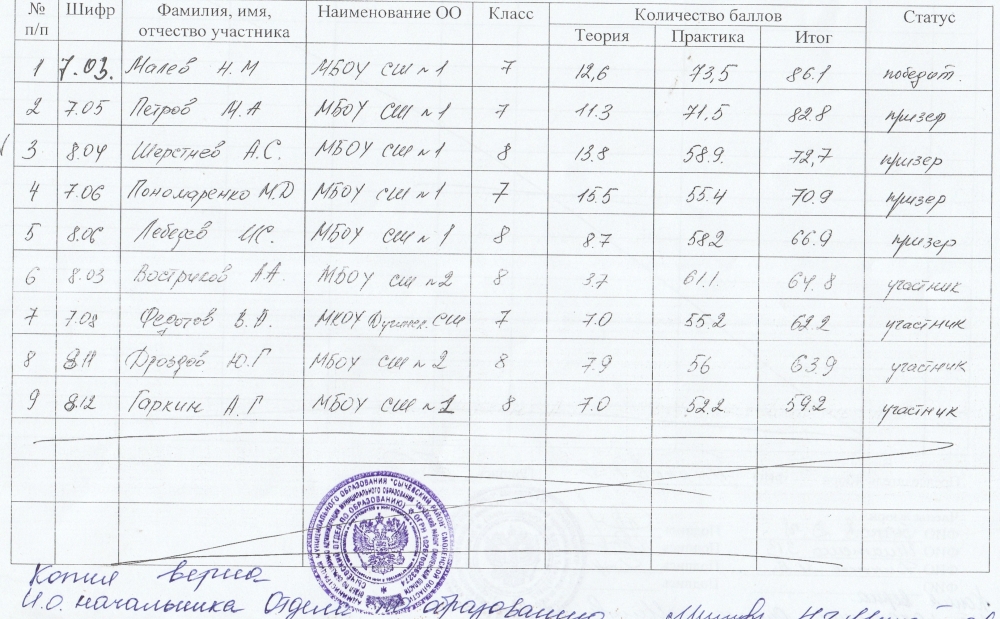 № п/п Шифр Фамилия, имя, отчество участника Наименование ОО Класс Количество баллов Статус
Теория Практика Итог
1 7.03. Малев Н.М МБОУ СШ №1 7 12,6 73,5 86.1 победит.
2 7.05 Петров М.А МБОУ СШ №1 7 11.3 71,5 82.8 призер
3 8.04 Шерстнев А.С. МБОУ СШ №1 8 13.8 58.9 72,7 призер
4 7.06 Пономаренко М.Д МБОУ СШ №1 7 15.5 55.4 70.9 призер
5 8.06 Лебедев И.С. МБОУ СШ №1 8 8.7 58.2 66.9 призер
6 8.03 Востриков А.А. МБОУ СШ №2 8 3.7 61.1. 64.8 участник
7 7.08 Федотов В.А. МКОУ СШ 7 7.0 55.2 62.2 участник
8 8.11 Дроздов Ю.Г МБОУ СШ №2 8 7.9 56 63.9 участник
9 8.12 Гаркин А.Г МБОУ СШ №2 8 7.0 52.2 59.2 участник
Копия верна
И.О. начальника Отдела образованию